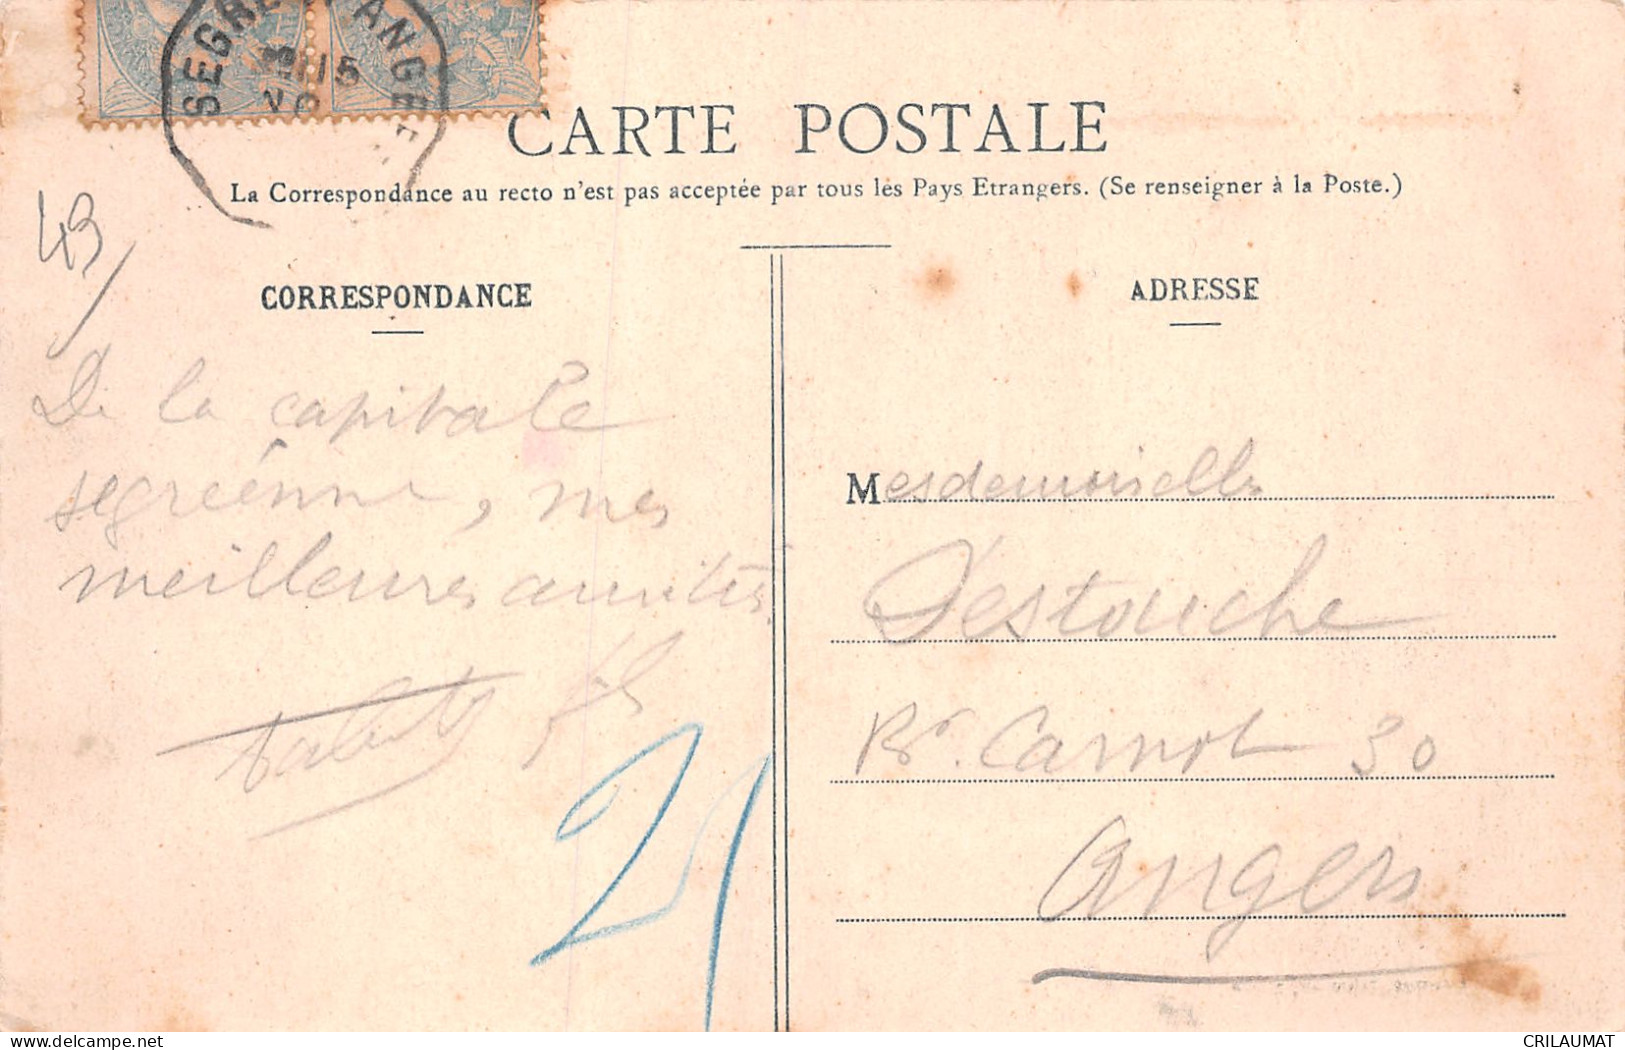 SEGRE ANGE
15
CARTE POSTALE
La Correspondance au recto n'est pas acceptée par tous les Pays Etrangers. (Se renseigner à la Poste.)
43
CORRESPONDANCE
De la capitale
segréenne, mes
meilleures amitiés
ADRESSE
Mesdemoiselles
Destouche
Bd. Carnot 30
Angers
21
delcampe.net
CRILAUMAT